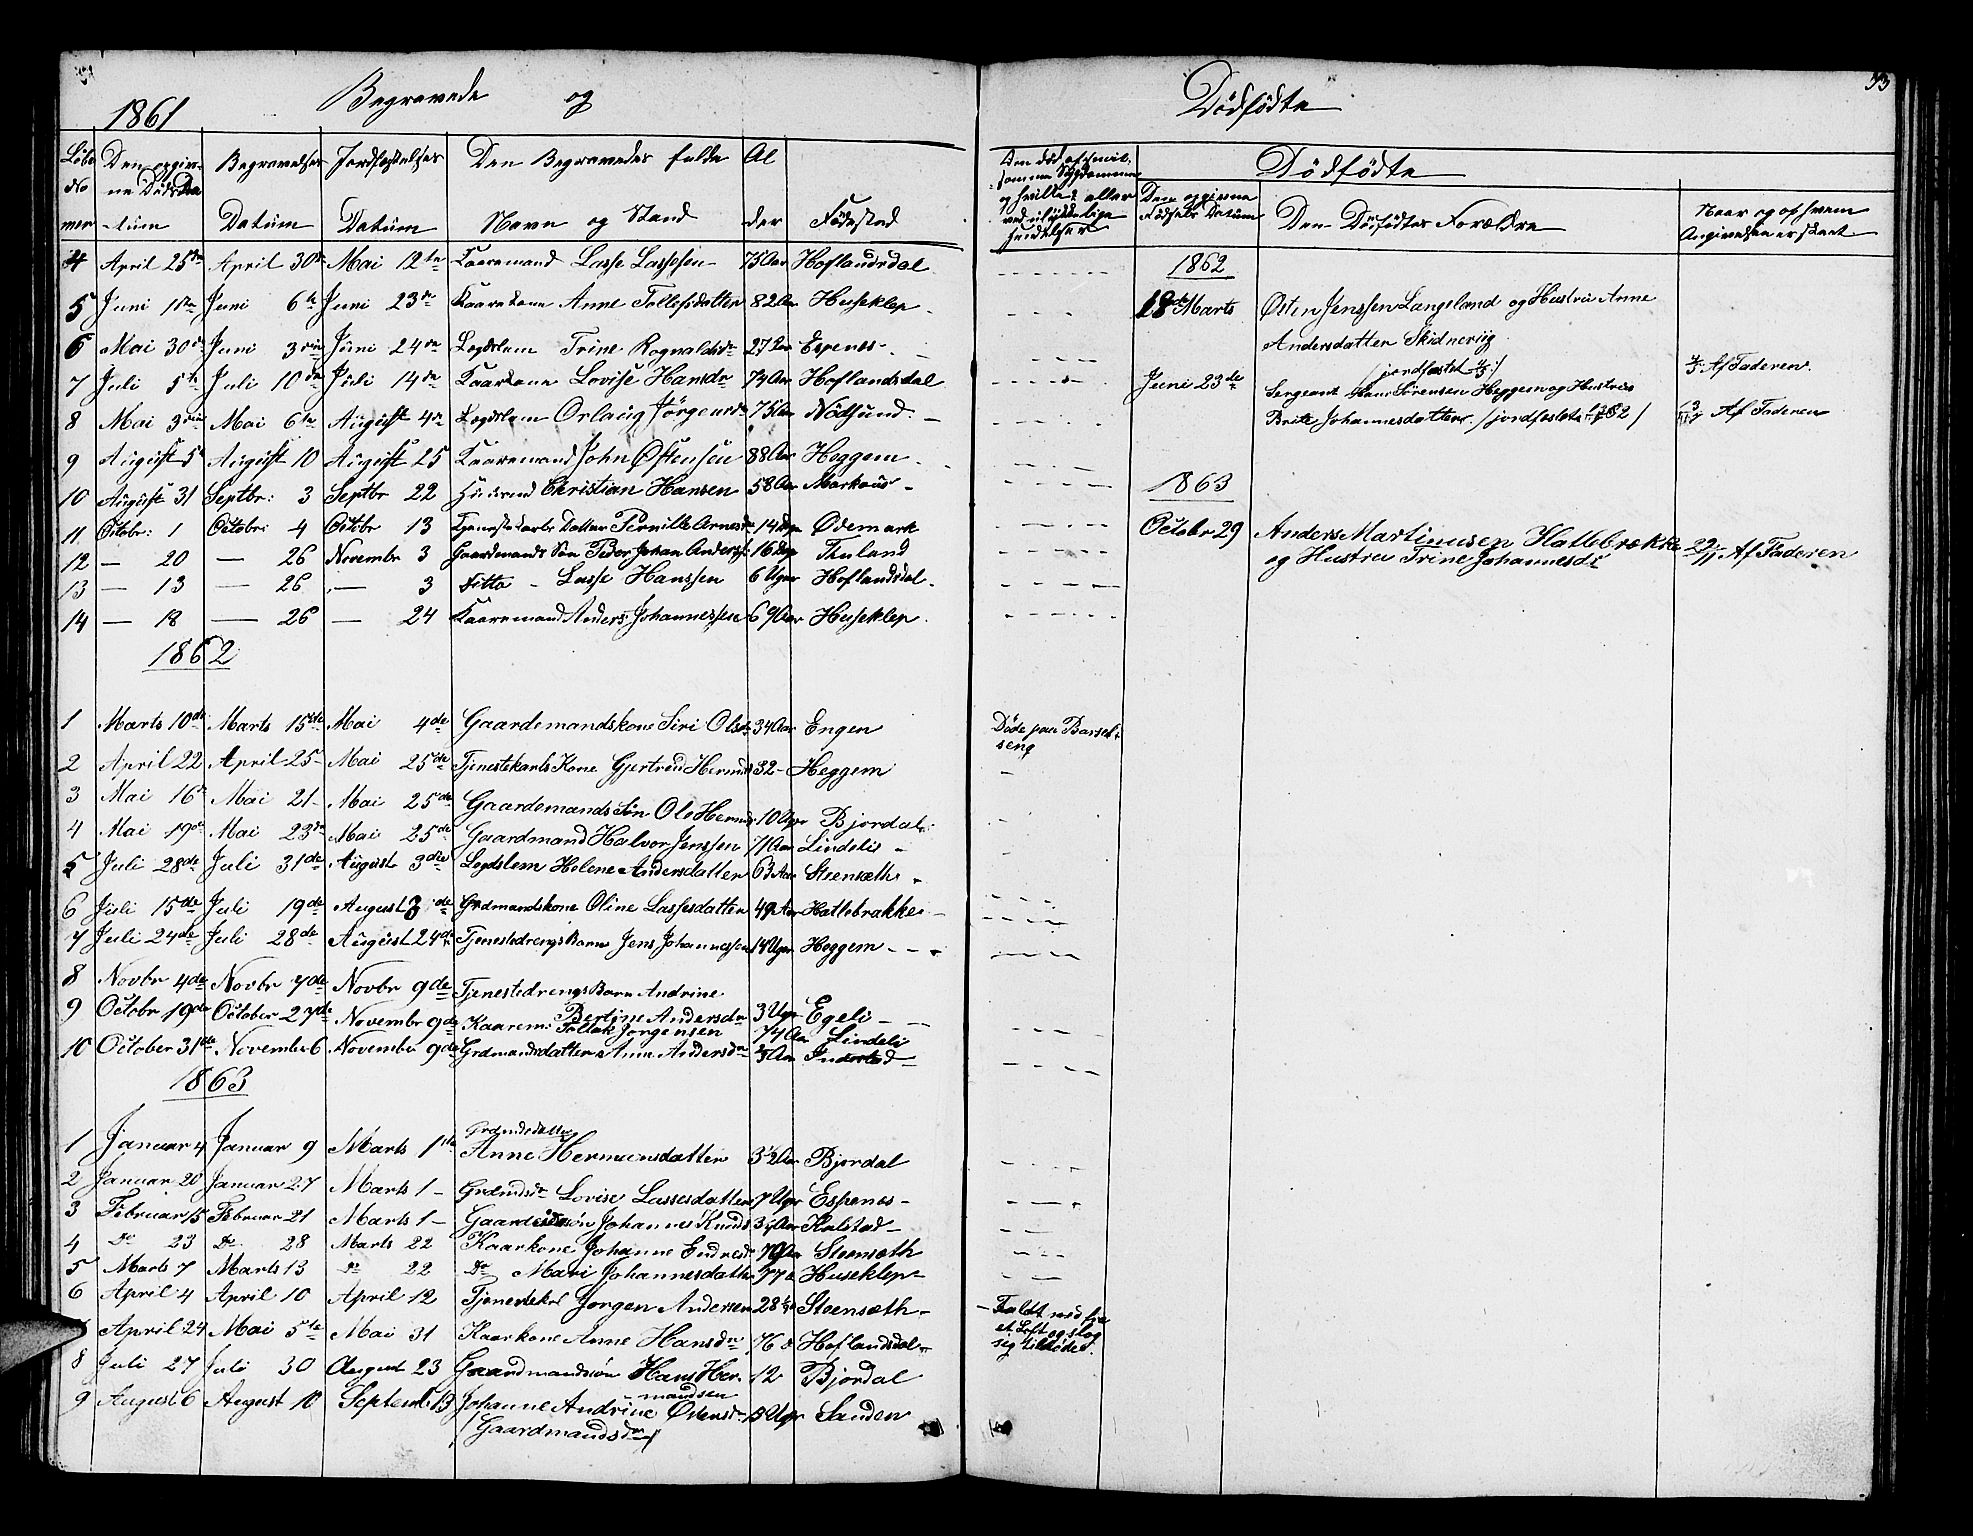 53
1861 Begravede og Dødfødte
Løbe No mer Den opgivne Døds Datum Begravelses Datum Jordfæstelses Datum Den Begravedes fulde Navn og Stand Alder Fødested
4 April 25de April 30te Mai 12te Kaaremand Lasse Lassesen 75 Aar Hoflandsdal
5 Juni 1te Juni 6te Juni 23de Kaarekone Anne Tollefsdatter 82 Aar Huseklep
6 Mai 30te Juni 3die Juni 24de Legdslem Trine Rognaldsdr 27 Aar Espenes
7 Juli 5te Juli 10de Juli 14de Kaarkone Lovise Hansdr 74 Aar Hoflandsdal
8 Mai 3die Mai 6te August 4de Legdslem Orlaug Jörgensdr 75 Aar Nödsund
9 August 5 August 10 August 25 Kaaremand John Østensen 88 Aar Heggem
10 August 31 Septbr: 3 Septbr 22 Christian Hansen 58 Aar Markaus
11 Octobr: 1 Octobr: 4 Octobr 13 Tjenestekarls Datter Pernille Arnesdr 14 Dage Ødemark
12 — 20 — 26 Novembr 3 Gaardmands Søn Peder Johan Anders: 16 Dage Tuland
13 — 13 — 26 — 3 Ditto — Lasse Hanssen 6 Uger Hoflandsdal
14 — 18 — 26 — 24 Kaaremand Anders Johannessen 69 Aar Huseklep
1862
1 Marts 10de Marts 15de Mai 4de Gaardemandskone Siri Olsdr 34 Aar Engen
2 April 22 April 25 Mai 25de Tjenestekarls Kone Gjertrud Hermds 32 Heggem
3 Mai 16de Mai 21 Mai 25de Gaardemands Sön Ole Herm 10 Uger Bjordal
4 Mai 19de Mai 23de Mai 25de Gaardmand Halvor Jenssen 71 Aar Lindeli
5 Juli 28de Juli 31de August 3die Legdslem Helene Andersdatter 63 Aar Steensæth
6 Juli 15de Juli 19de August 3de Grdmandskone Oline Lassesdatter 49 Aar Hatlebrække
7 Juli 24de Juli 28de August 24de Tjenestedrengs Barn Jens Johannessen 14 Uger Heggem
8 Novbr 4de Novbr 7de Novbr 9de Tjenestedrengs Barn Andrine
Bertine Andersdr 3 Uger Egeli
9 Octobr 19de October 27de Novembr 9de Kaarem: Tollak Jorgensen 74 Aar Lindeli
10 October 31de November 6 November 9de Grdmandsdatter Anne Andersdr Aar Indrestad
1863
Grdmdsdatter
1 Januar 4 Januar 9 Marts 1ste Anne Hermunsdatter 3½ Aar Bjordal
2 Januar 20 Januar 27 Marts 1 Grdmdsdr Lovise Lassesdatter 7 Uger Espenes
3 Februar 15 Februar 21 Marts 1 Gaardmdssøn Johannes Knuds Aar Kalstad
4 Do 23 Do 28 Marts 22 Kaarkone Johanne Endresdr Aar Steensæth
5 Marts 7 Marts 13 Do 22 Do Mari Johannesdatter 77 Huseklep
6 April 4 April 10 April 12 Tjenestek Jorgen Andersen 28 Steensæth
April 24 Mai 5te Mai 31 Kaarkone Anne Hansdr 76 Hoflandsdal
8 Juli 27 Juli 30 August 23 Gaardmandssøn Hans Her- 12 Bjordal
mandsen
9 August 6 August 10 Septemb 13 Johanne Andrine Ostensdr 15 Uger Sanden
(Gaardmandsdr)
Den død af hvilsomme Sygdomme og hvilke? eller ved ulykkelige Hændelser
Døde paa Barsel-
seng
Faldt ned fra
et Loft og slog
sig tildøde.
Dødfødte
Den opgivne Fødsels Datum Den Dødfødtes Forældre Naar og af hvem Angivelsen er skeet
1862
18de Marts Østen Jenssen Langeland og Hustru Anne
Andersdatter Skidneriig
jordfæstet Af Faderen
Juni 23de Sergeant Hans Sørensen Heggem og Hustrue
Brite Johannesdatter /jordfæstet / Af Faderen
1863
Octobr 29 Anders Martinusen Hatlebrække
og Hustru Trine Johannesdr 22/11 Af Faderen